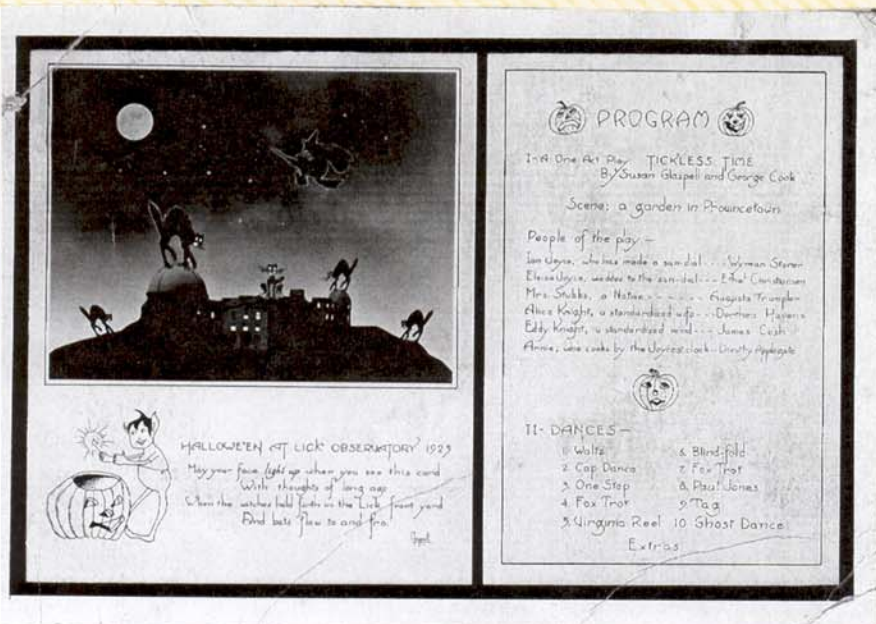 HALLOWE'EN AT LICK OBSERVATORY 1925
May your face light up when you see this card
With thoughts of long ago
When the witches held forth in the Lick front yard
And bats flew to and fro.
PROGRAM
I- A One Act Play TICKLESS TIME
By Susan Glaspell and George Cook
Scene: a garden in Provincetown
People of the play —
Ian Joyce, who has made a sun-dial --- Wyman Storer
Eloise Joyce, wedded to the sun-dial --- Ethel Christensen
Mrs. Stubbs, a Native - - - - - - Augusta Trumpler
Alice Knight, a standardized wife --- Dorthea Havens
Eddy Knight, a standardized mind --- James Cush
Annie, who cooks by the Joyces' clock -- Dorothy Applegate
II- DANCES —
1. Waltz
2. Cap Dance
3. One Step
4. Fox Trot
5. Virginia Reel
6. Blind-fold
7. Fox Trot
8. Paul Jones
9. Tag
10 Ghost Dance
Extras